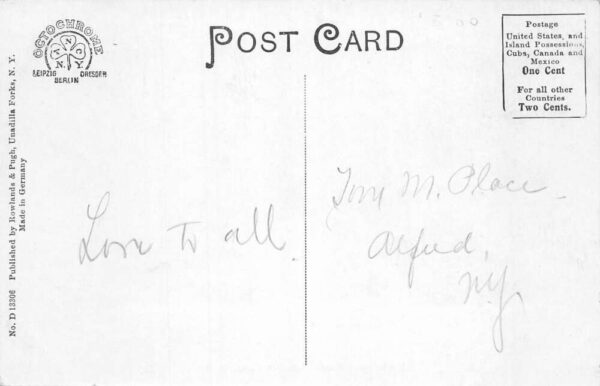 OCTOCHROME
A N C
N.Y.
LEIPZIG DRESDEN
BERLIN
POST CARD
Postage
United States, and
Island Possessions,
Cuba, Canada and
Mexico
One Cent
For all other
Countries
Two Cents.
No. D 13306 Published by Rowlands & Pugh, Unadilla Forks, N. Y.
Made in Germany
Love to all.
M. Place
Alfred,
N.Y.